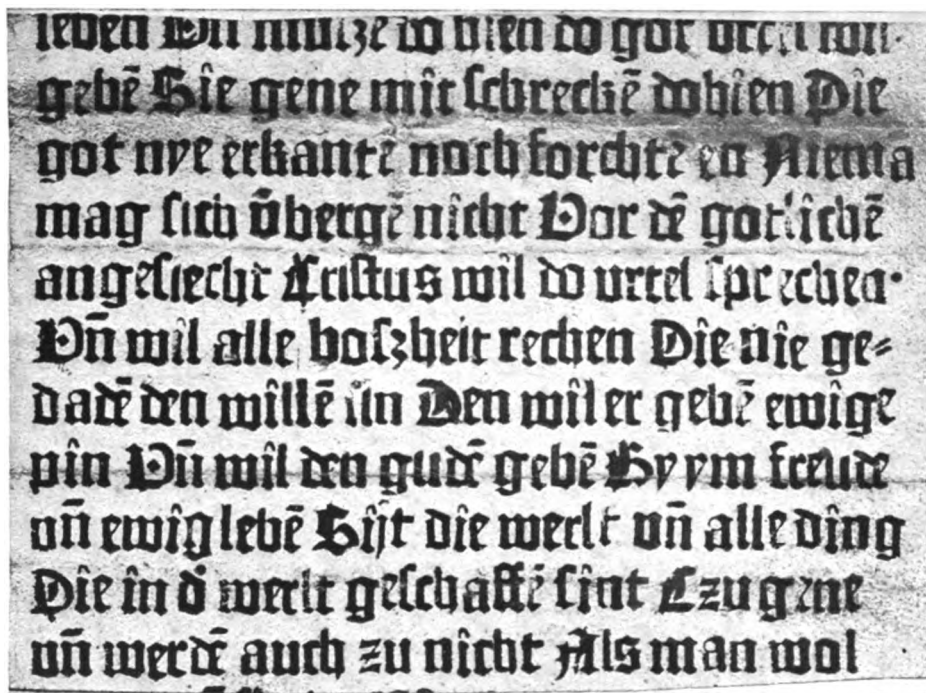 leben Vñ do hien do got wil·
gebē Sie gene mit ſchreckē dohien Die
got nye erkantē noch forchtē en Niema
mag ſich v̄bergē nicht Vor dē gotlichē
angeſiecht Criſtus wil do urtel ſprechen·
Vñ wil alle boſzheit rechen Die nie ge⸗
dadē den willē ſin Den wil er gebē ewige
pin Vñ wil den gudē gebē By ym freude
vñ ewig lebē Sijt die werlt vñ alle ding
Die in d̄ werlt geſchaffē ſint Czu gene
vñ werdē auch zu nicht Als man wol